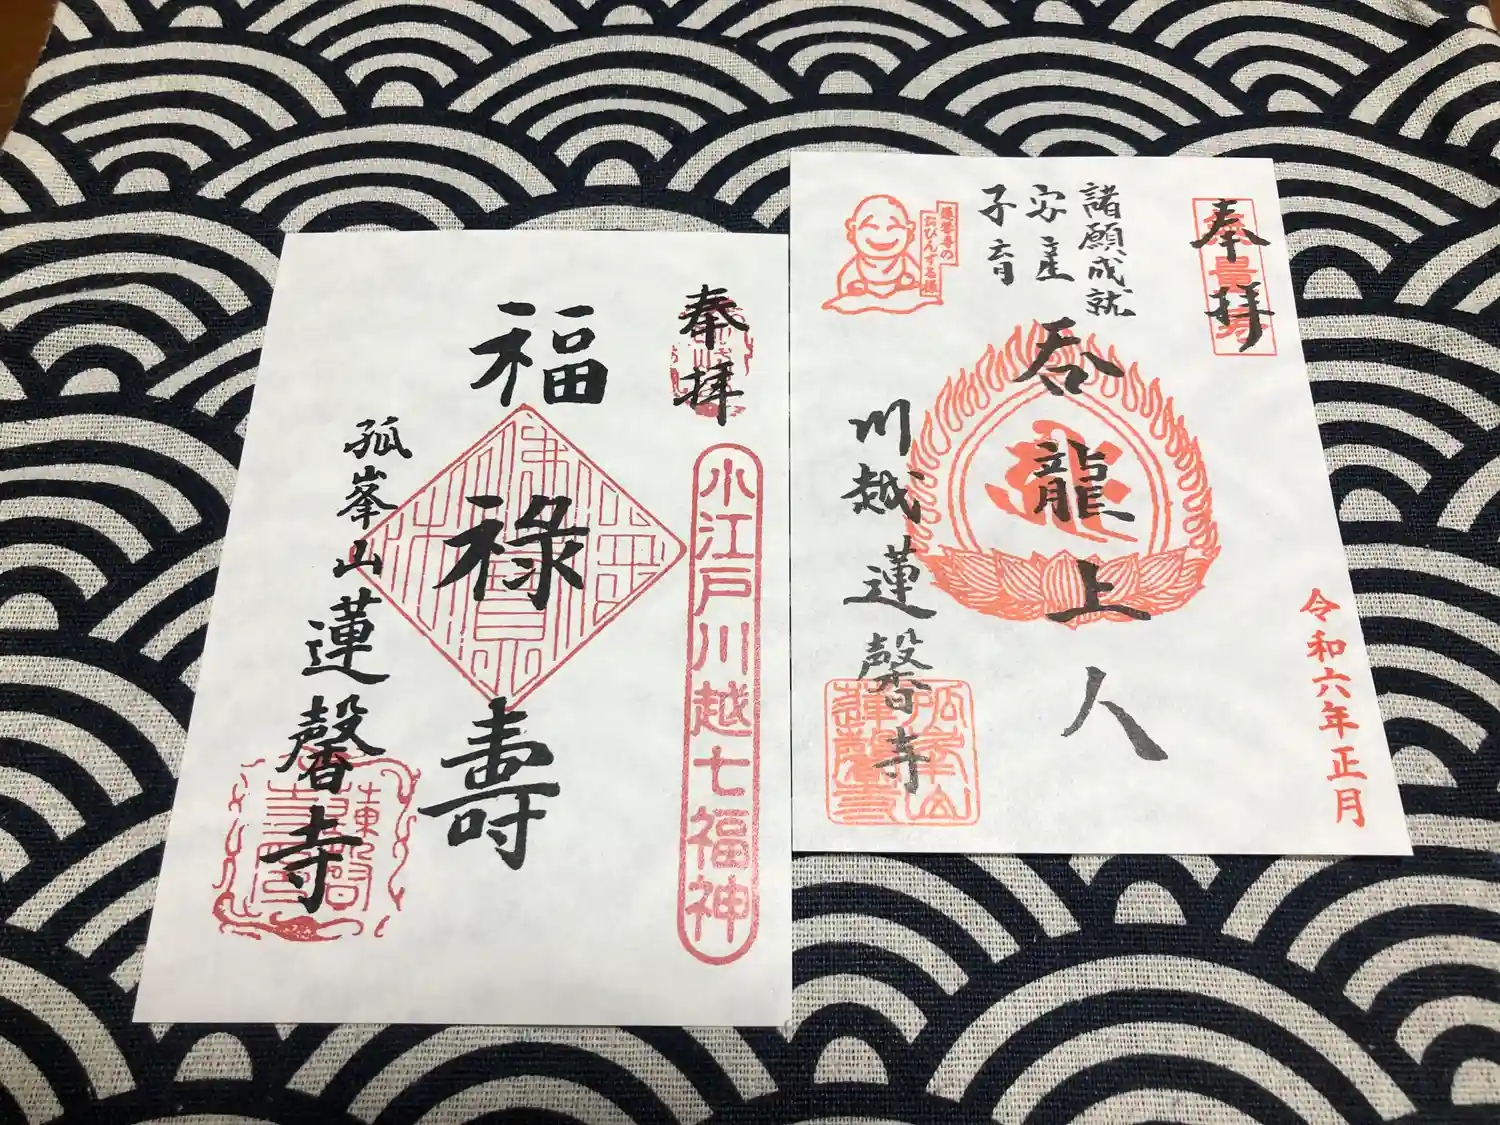 奉拝
小江戸川越七福神
福禄壽
孤峯山
蓮馨寺
奉拝
諸願成就
安産
子育
蓮馨寺の
おびんずる様
呑龍上人
川越蓮馨寺
令和六年正月